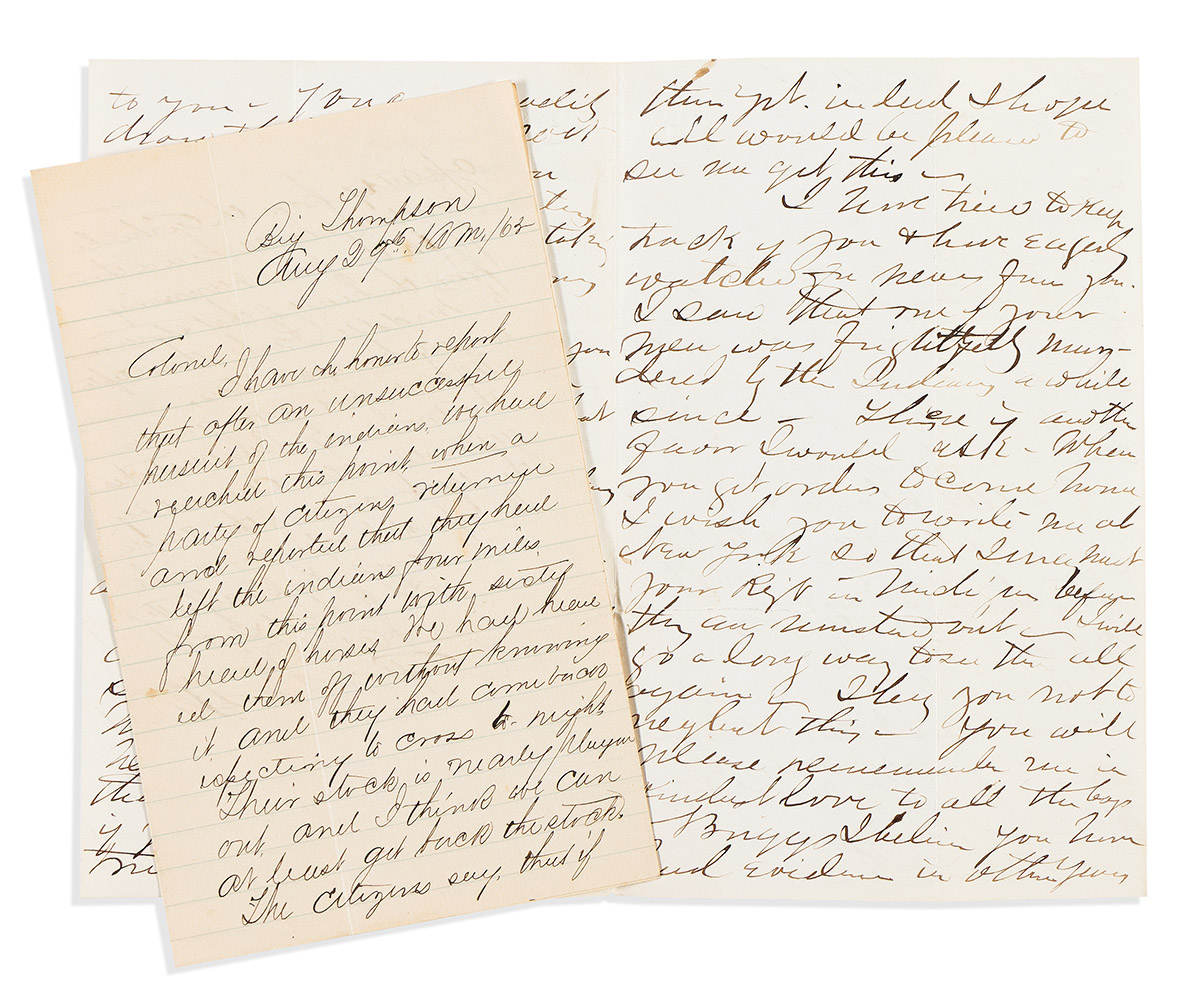 Big Thompson
Aug 29th, 1 A.M., /65
Colonel,
I have the honor to report
that after an unsuccessful
pursuit of the indians, we have
reached this point, when a
party of citizens returned
and reported that they had
left the indians four miles
from this point with sixty
head of horses. We had head
ed them off without knowing
it, and they had come back
expecting to cross to night.
Their stock is nearly played
out, and I think we can
at least get back the stock.
The citizens say, that if
to you - you
them yet. indeed I hope
all would be pleased to
see me get this -
I have tried to keep
track of you & have eagerly
watched for news from you.
I saw that one of your
men was frightfully mur-
dered by the Indians a while
since - There is another
favor I would ask - When
you get orders to come home
I wish you to write me at
New York so that I may meet
your Regt in Michigan before
they are mustered out - I will
go a long way to see them all
again - I beg you not to
neglect this - You will
please remember me in
kindest love to all the boys
Briggs I believe you have
had evidence in other years